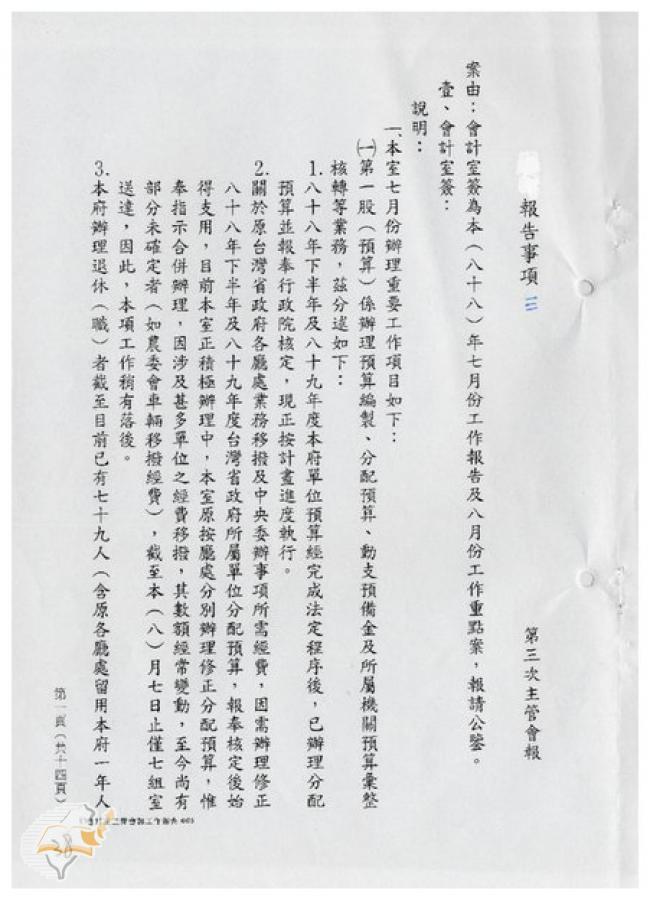 報告事項 三
第三次主管會報
案由：會計室簽為本（八十八）年七月份工作報告及八月份工作重點案，報請公鑒。
壹、會計室簽：
說明：
一、本室七月份辦理重要工作項目如下：
㈠第一股（預算）係辦理預算編製、分配預算、動支預備金及所屬機關預算彙整
核轉等業務，茲分述如下：
1.八十八年下半年及八十九年度本府單位預算經完成法定程序後，已辦理分配
預算並報奉行政院核定，現正按計畫進度執行。
2.關於原台灣省政府各廳處業務移撥及中央委辦事項所需經費，因需辦理修正
八十八年下半年及八十九年度台灣省政府所屬單位分配預算，報奉核定後始
得支用，目前本室正積極辦理中，本室原按廳處分別辦理修正分配預算，惟
奉指示合併辦理，因涉及甚多單位之經費移撥，其數額經常變動，至今尚有
部分未確定者（如農委會車輛移撥經費），截至本（八）月七日止僅七組室
送達，因此，本項工作稍有落後。
3.本府辦理退休（職）者截至目前已有七十九人（含原各廳處留用本府一年人
第一頁（共十四頁）
38